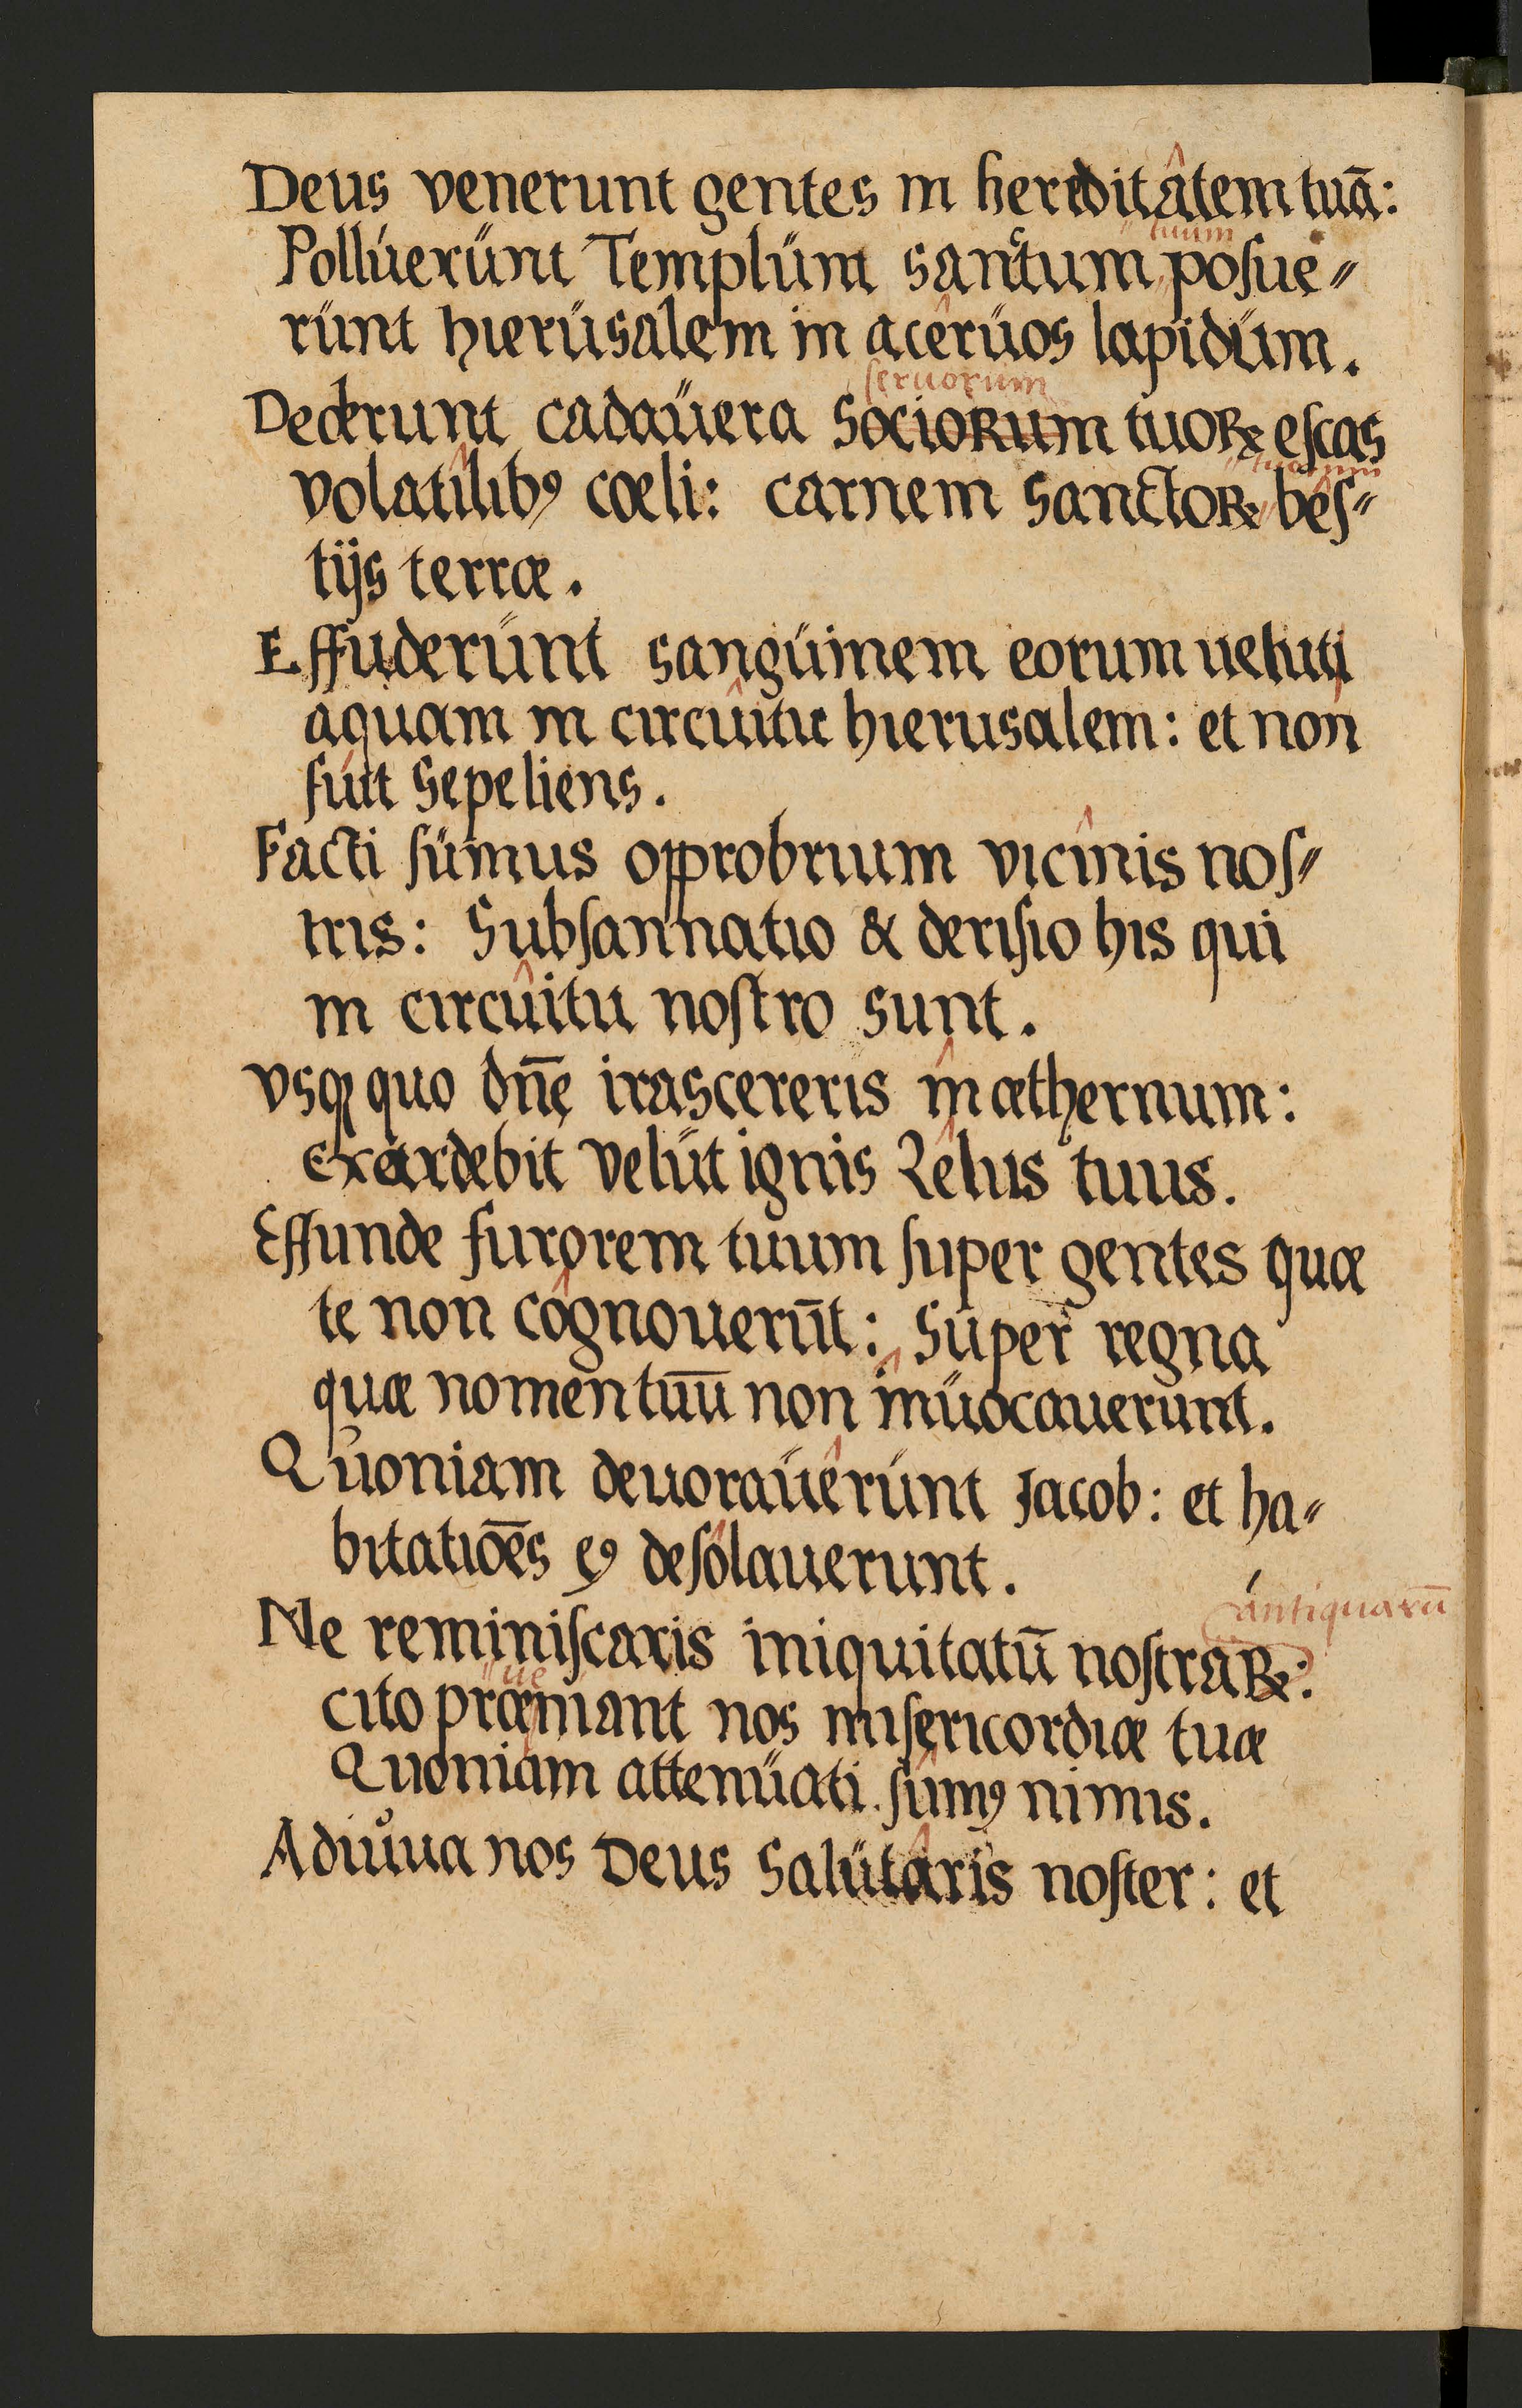 Deus venerunt gentes in hereditâtem tuā:
tuum
Pollúerünt Templüm sanctum posue〃
rünt hierüsalem in acêrüos lapidüm.
seruorum
Dederunt cadaüera Sociorum tuoꝝ eſcas
tuorum
volatîlibꝯ cœli: carnem Sanctoꝝ béſ〃
tijs terræ.
Effuderünt sangüinem eorum ueluti
aquam in circûitu hierusalem: et non
fúit Sepeliens.
Facti ſümus opprobrium vicînis noſ〃
tris: Subſannatio & deriſio his qui
in circûitu noſtro sunt.
vsqꝫ quo dn̄e irascereris în æthernum:
exardebit velüt ignis Zêlus tuus.
Effunde furorem tuum ſuper gentes quæ
te non côgnouerūt: Super regna
quæ nomen tuū non inüocauerunt.
Quoniam deuoraüêrúnt Jacob: et ha〃
bitatiōēs eꝯ deſólauerunt.
ántiquarū
Ne reminiſcaris iniquitatū noſtraꝝ:
ue
cito præniant nos miſericordiæ tuæ
Quoniam attenüati. ſûmꝯ nimis.
Adiuua nos Deus Salütâris noſter: et